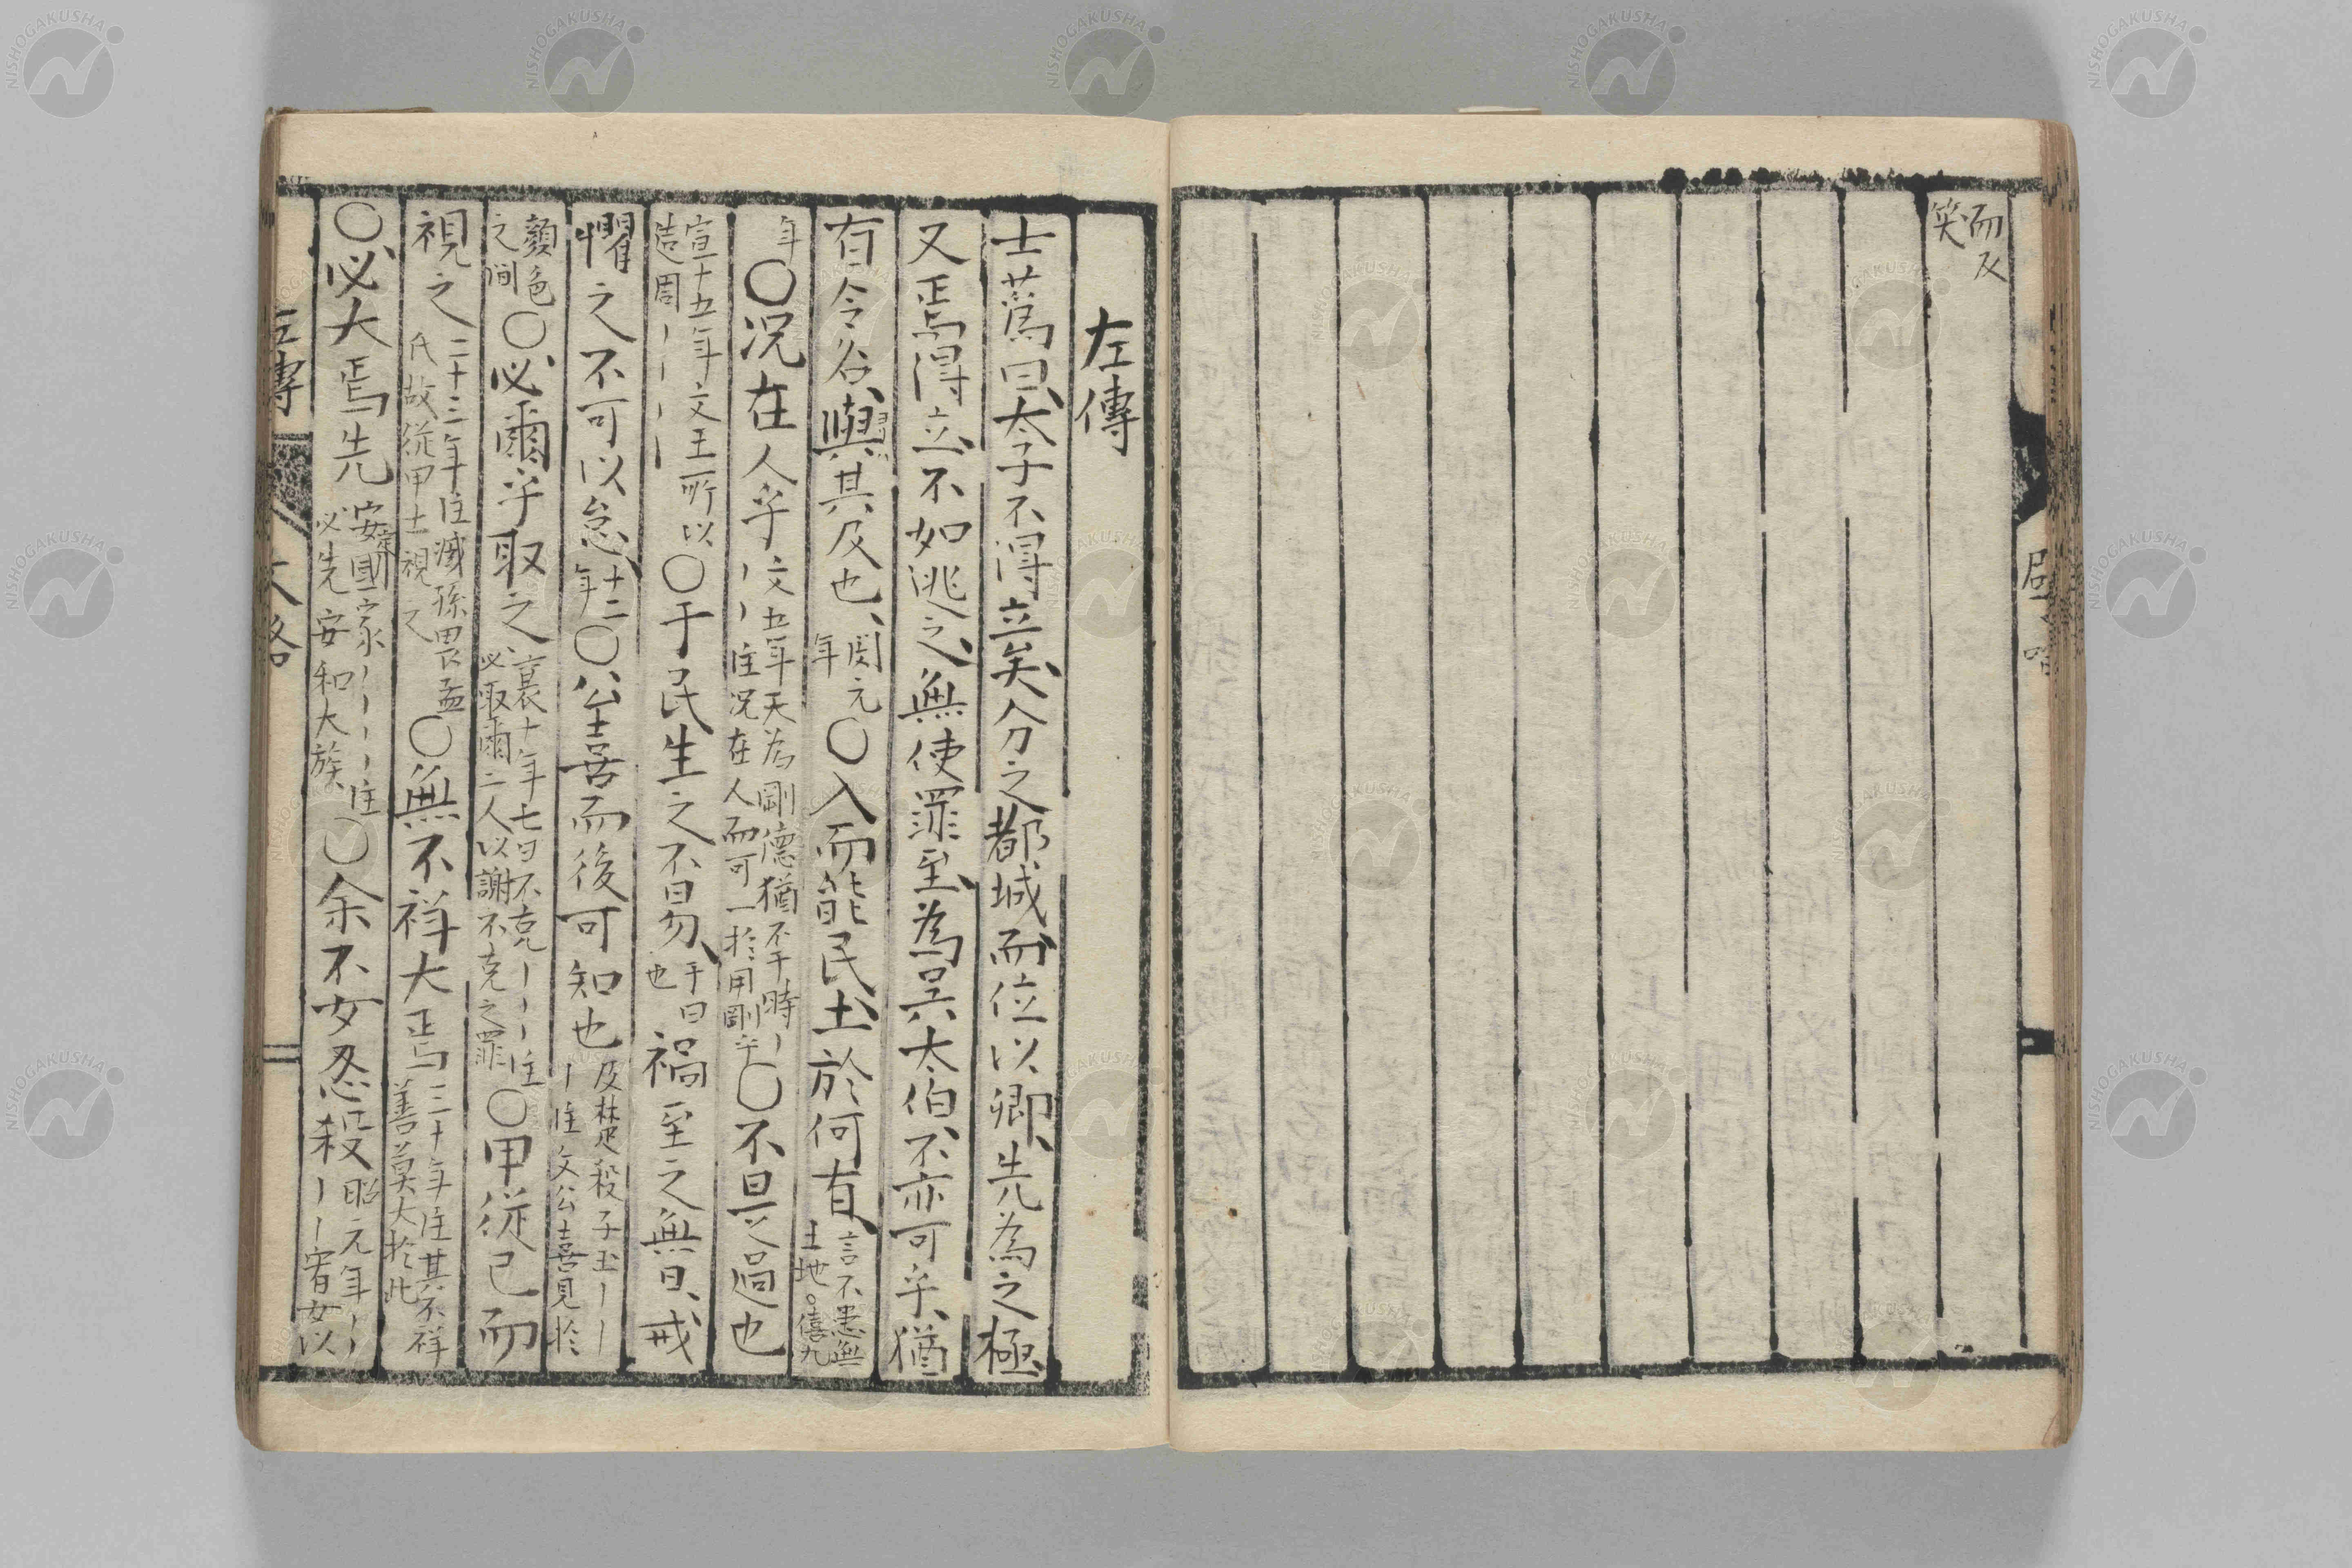 而又
笑
左傳
士蒍曰、太子不得立矣、分之都城而位以卿、先為之極、
又焉得立、不如逃之、無使罪至、為吳太伯、不亦可乎、猶
有令名、與其及也、閔元年〇入而能民、土於何有、言不患無土地。僖九
年〇况在人乎文五年天為剛德猶不干時〡〡〡住况在人而可一於用剛乎〇不是過也
宣十五年文王所以造周〡〡〡〡〇于民生之不易、于曰也禍至之無日、戒
懼之不可以怠、十二年〇公喜而後可知也及楚殺子玉〡〡〡住文公喜見於
顏色之間〇必爾乎取之襄十年七日不克〡〡〡住必取爾二人以謝不克之罪〇甲從己而
視之二十三年住滅孫畏孟氏故從甲士視之〇無不祥大焉三十年住其不祥善莫大於此
〇必大焉先安定國家〡〡〡〡住必先安和大族〇余不女忍殺昭元年〡〡〡〡宥女以
左傳